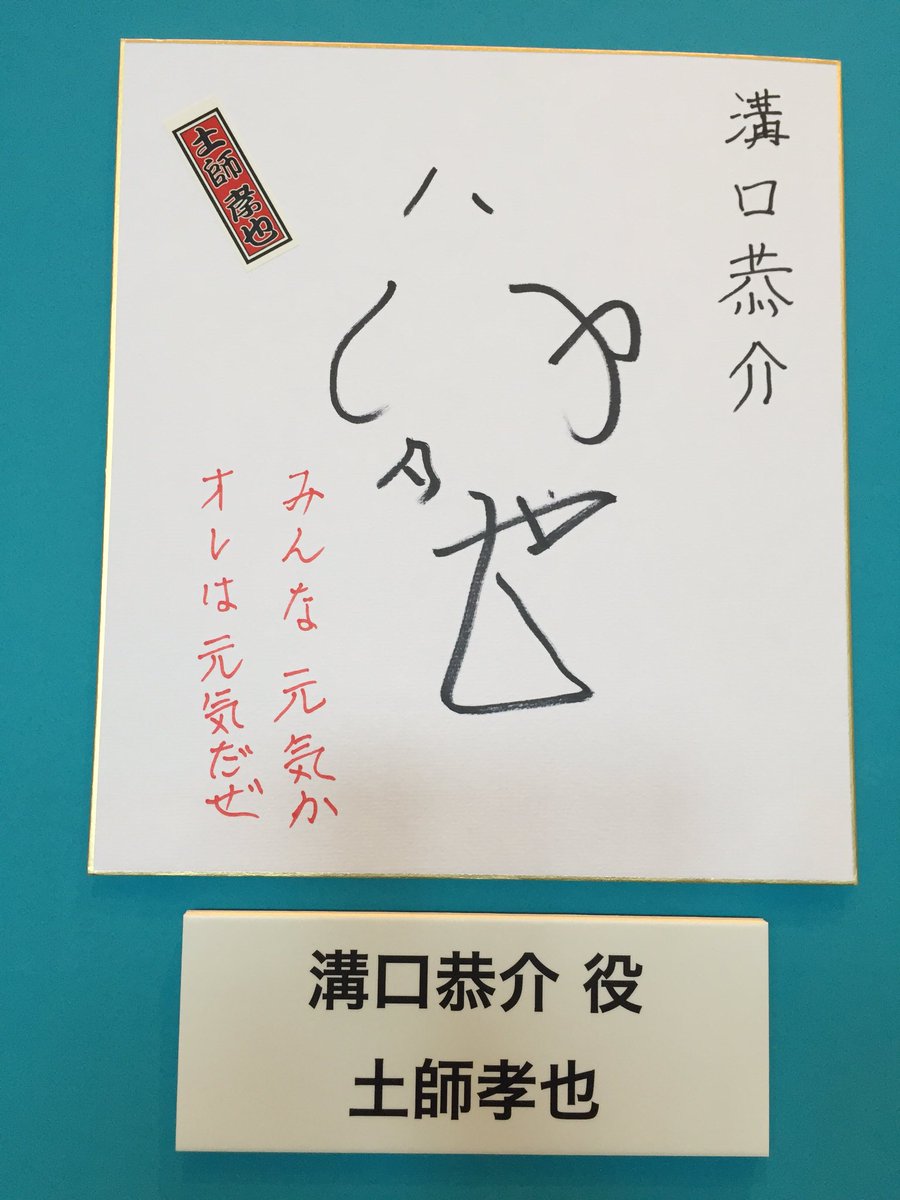 溝口恭介
土師孝也
みんな元気か
オレは元気だぜ
溝口恭介 役
土師孝也